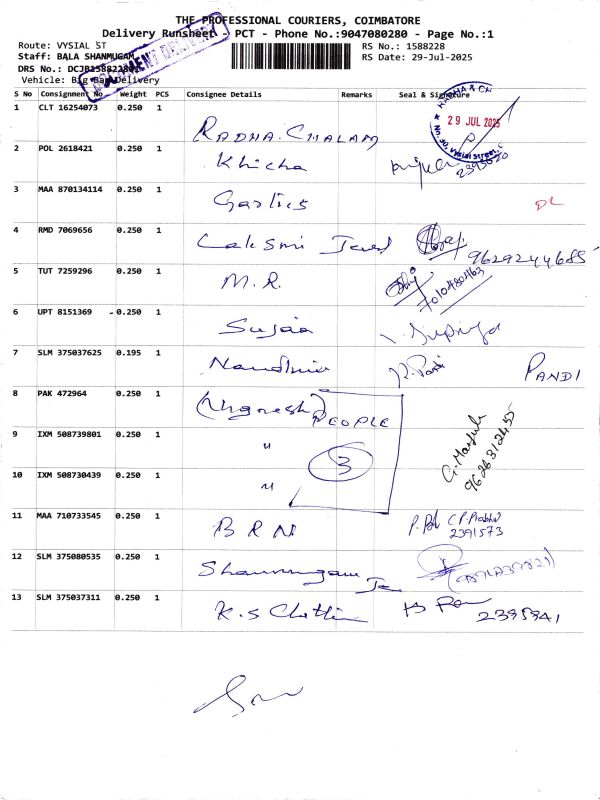 THE PROFESSIONAL COURIERS, COIMBATORE
Delivery Runsheet - PCT - Phone No.:9047080280 - Page No.:1
Route: VYSIAL ST RS No.: 1588228
Staff: BALA SHANMUGAM RS Date: 29-Jul-2025
DRS No.: DCJB1588228
Vehicle: Big Bag Delivery
DOCUMENT DELIVERY
S No Consignment No Weight PCS Consignee Details Remarks Seal & Signature
29 JUL 2025
No. 30, Vysial Street,
1 CLT 16254073 0.250 1 RADHA CHALAM
2 POL 2618421 0.250 1 Khicha 2395020
3 MAA 870134114 0.250 1 Garlics DL
4 RMD 7069656 0.250 1 Laksmi Jewel 9629244685
5 TUT 7259296 0.250 1 M.R.
6 UPT 8151369 0.250 1 Sujaa
7 SLM 375037625 0.195 1 Nandhini PANDI
8 PAK 472964 0.250 1 (Vignesh) PEOPLE
9 IXM 508739801 0.250 1 " 3
10 IXM 508730439 0.250 1 "
9626312455
11 MAA 710733545 0.250 1 B R N (P. Prabhu
2391573
12 SLM 375080535 0.250 1 Shanmugam Je
13 SLM 375037311 0.250 1 K.S Chettiar 2395941